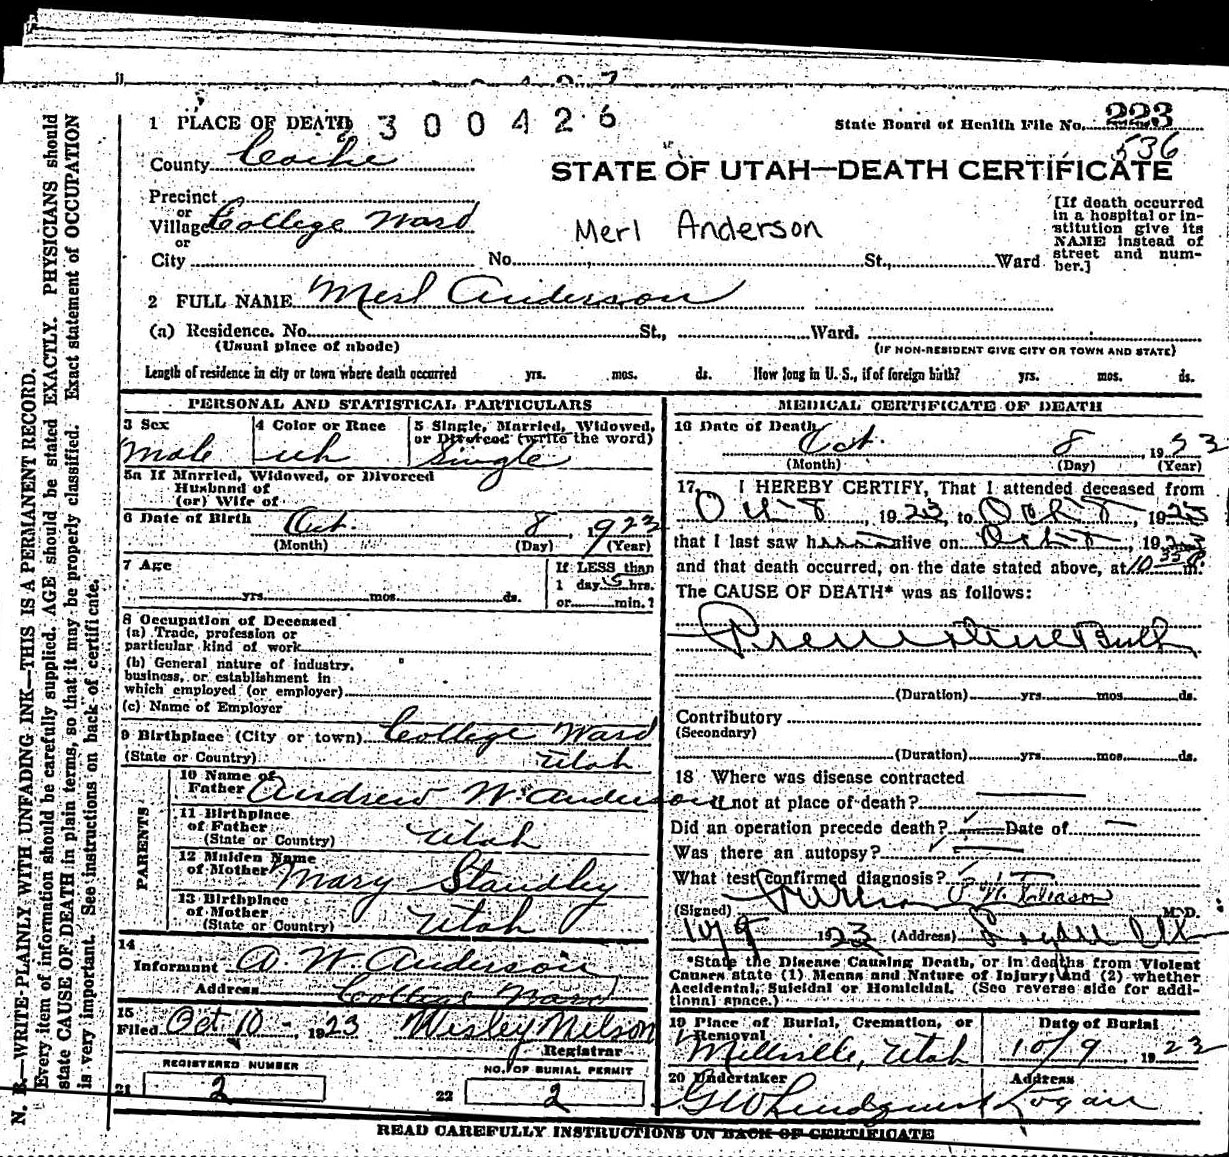 1 PLACE OF DEATH 2300426
State Board of Health File No. 223
536
County Cache
STATE OF UTAH—DEATH CERTIFICATE
Precinct
or
Village College Ward
or
City No. St., Ward
Merl Anderson
[If death occurred
in a hospital or in-
stitution give its
NAME instead of
street and num-
ber.]
2 FULL NAME Merl Anderson
(a) Residence. No. St., Ward.
(Usual place of abode)
(IF NON-RESIDENT GIVE CITY OR TOWN AND STATE)
Length of residence in city or town where death occurred yrs. mos. ds. How long in U. S., if of foreign birth? yrs. mos. ds.
PERSONAL AND STATISTICAL PARTICULARS
3 Sex 4 Color or Race 5 Single, Married, Widowed,
or Divorced (write the word)
Male wh Single
5a If Married, Widowed, or Divorced
Husband of
(or) Wife of
6 Date of Birth Oct. 8, 1923
(Month) (Day) (Year)
7 Age
yrs. mos. ds.
If LESS than
1 day 5 hrs.
or min.?
8 Occupation of Deceased
(a) Trade, profession or
particular kind of work
(b) General nature of industry,
business, or establishment in
which employed (or employer)
(c) Name of Employer
9 Birthplace (City or town) College Ward
(State or Country) Utah
PARENTS
10 Name of
Father Andrew W. Anderson
11 Birthplace
of Father
(State or Country) Utah
12 Maiden Name
of Mother Mary Standley
13 Birthplace
of Mother
(State or Country) Utah
14
Informant A. W. Anderson
Address College Ward
15
Filed Oct 10 - 1923 Wesley Nelson
Registrar
REGISTERED NUMBER NO. OF BURIAL PERMIT
21 2 22 2
MEDICAL CERTIFICATE OF DEATH
16 Date of Death
Oct. 8, 1923
(Month) (Day) (Year)
17. I HEREBY CERTIFY, That I attended deceased from
Oct 8, 1923, to Oct 8, 1923
that I last saw h alive on Oct 8, 1923
and that death occurred, on the date stated above, at 10 35 P m.
The CAUSE OF DEATH* was as follows:
Premature Birth
(Duration) yrs. mos. ds.
Contributory
(Secondary)
(Duration) yrs. mos. ds.
18 Where was disease contracted
if not at place of death?
Did an operation precede death? Date of
Was there an autopsy?
What test confirmed diagnosis?
(Signed) M.D.
10/9 1923 (Address)
*State the Disease Causing Death, or in deaths from Violent
Causes state (1) Means and Nature of Injury; and (2) whether
Accidental, Suicidal or Homicidal. (See reverse side for addi-
tional space.)
19 Place of Burial, Cremation, or Date of Burial
Removal
Millville, Utah 10/9 1923
20 Undertaker Address
G W Lindquist Logan
READ CAREFULLY INSTRUCTIONS ON BACK OF CERTIFICATE
N. B.—WRITE PLAINLY WITH UNFADING INK—THIS IS A PERMANENT RECORD.
Every item of information should be carefully supplied. AGE should be stated EXACTLY. PHYSICIANS should
state CAUSE OF DEATH in plain terms, so that it may be properly classified. Exact statement of OCCUPATION
is very important. See instructions on back of certificate.